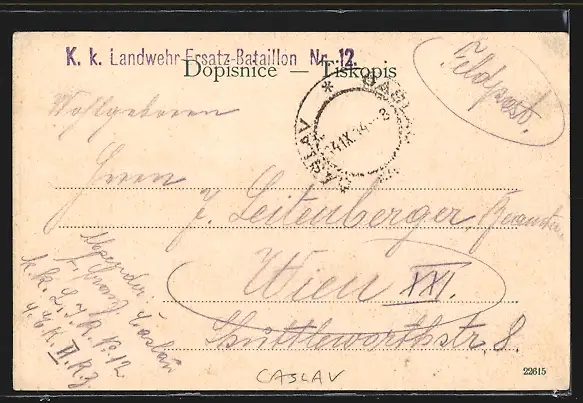 K. k. Landwehr-Ersatz-Bataillon Nr. 12.
Dopisnice — Tiskopis
Feldpost.
ČÁSLAV
Wohlgeboren
Herrn
J. Leitenberger, Beamter
Wien XXI.
Shuttleworthstr. 8.
Absender:
Franz
Časlau
k. k. L. I. R. N. 12
II.
CASLAV
22615